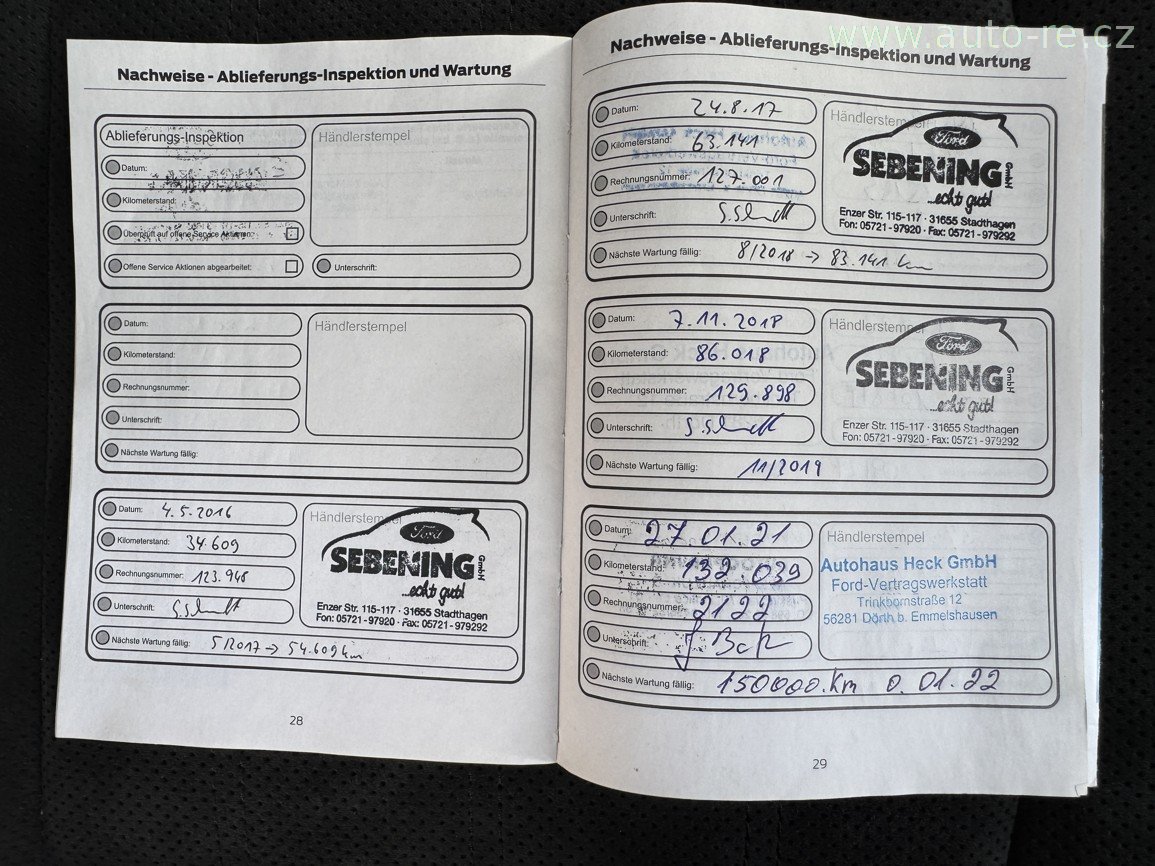 www.auto-re.cz
Nachweise - Ablieferungs-Inspektion und Wartung
Ablieferungs-Inspektion
Händlerstempel
Datum:
Kilometerstand:
Überprüft auf offene Service Aktionen:
Offene Service Aktionen abgearbeitet:
Unterschrift:
Datum:
Händlerstempel
Kilometerstand:
Rechnungsnummer:
Unterschrift:
Nächste Wartung fällig:
Datum: 4.5.2016
Kilometerstand: 34.609
Rechnungsnummer: 123.948
Unterschrift:
Händlerstempel
Ford
SEBENING GmbH
...echt gut!
Enzer Str. 115-117 · 31655 Stadthagen
Fon: 05721-97920 · Fax: 05721-979292
Nächste Wartung fällig: 5/2017 → 54.609 km
28
Nachweise - Ablieferungs-Inspektion und Wartung
Datum: 24.8.17
Kilometerstand: 63.141
Rechnungsnummer: 127.001
Unterschrift:
Händlerstempel
Ford
SEBENING GmbH
...echt gut!
Enzer Str. 115-117 · 31655 Stadthagen
Fon: 05721-97920 · Fax: 05721-979292
Nächste Wartung fällig: 8/2018 → 83.141 km
Datum: 7.11.2018
Kilometerstand: 86.018
Rechnungsnummer: 129.898
Unterschrift:
Händlerstempel
Ford
SEBENING GmbH
...echt gut!
Enzer Str. 115-117 · 31655 Stadthagen
Fon: 05721-97920 · Fax: 05721-979292
Nächste Wartung fällig: 11/2019
Datum: 27 01.21
Kilometerstand: 132.039
Rechnungsnummer: 2122
Unterschrift:
Händlerstempel
Autohaus Heck GmbH
Ford-Vertragswerkstatt
Trinkbornstraße 12
56281 Dörth b. Emmelshausen
Nächste Wartung fällig: 150000.Km o. 01.22
29